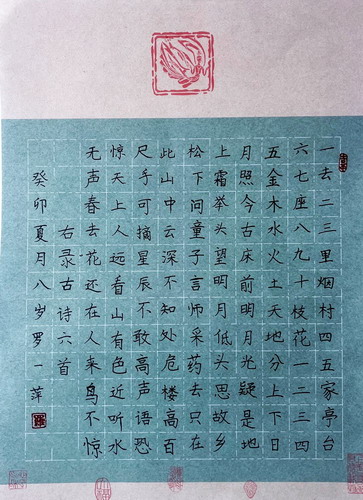 一去二三里烟村四五家亭台
六七座八九十枝花一二三四
五金木水火土天地分上下日
月照今古床前明月光疑是地
上霜举头望明月低头思故乡
松下问童子言师采药去只在
此山中云深不知处危楼高百
尺手可摘星辰不敢高声语恐
惊天上人远看山有色近听水
无声春去花还在人来鸟不惊
右录古诗六首
癸卯夏月八岁罗一萍